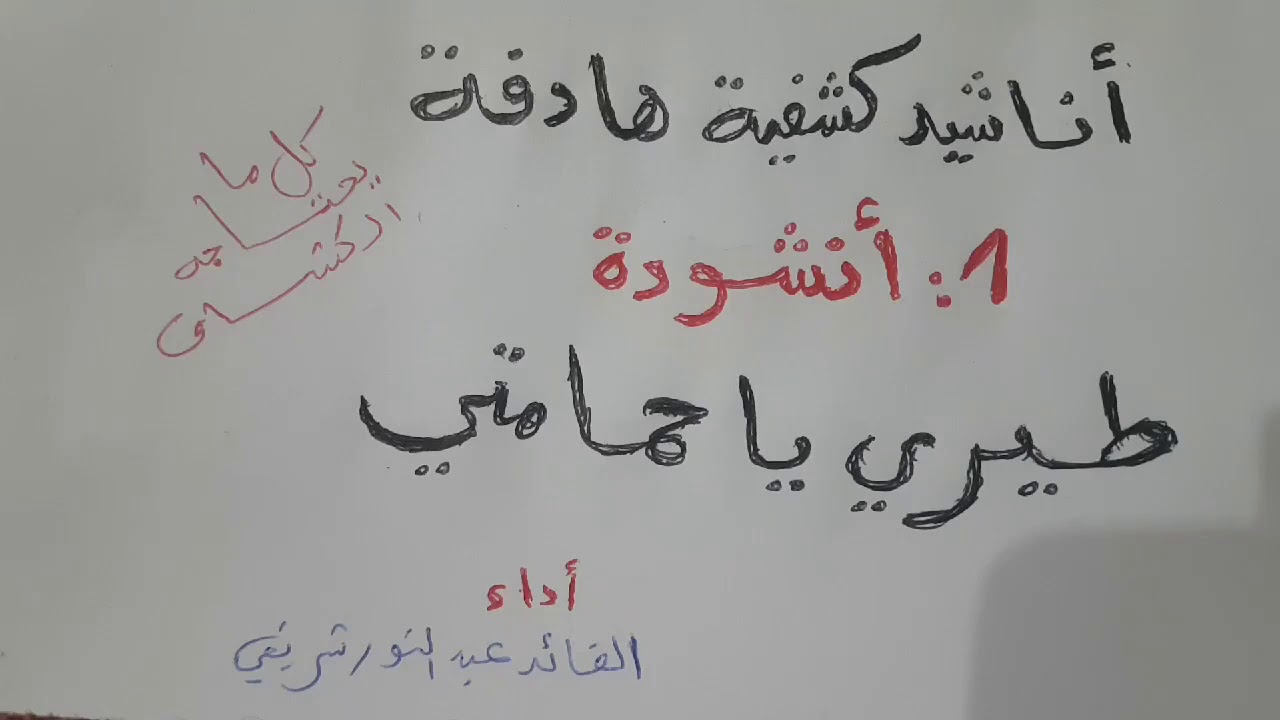 أناشيد كشفية هادفة
كل ما
يحتاجه
الكشفي
1: أنشودة
طيري يا حمامتي
أداء
القائد عبد النور شريفي